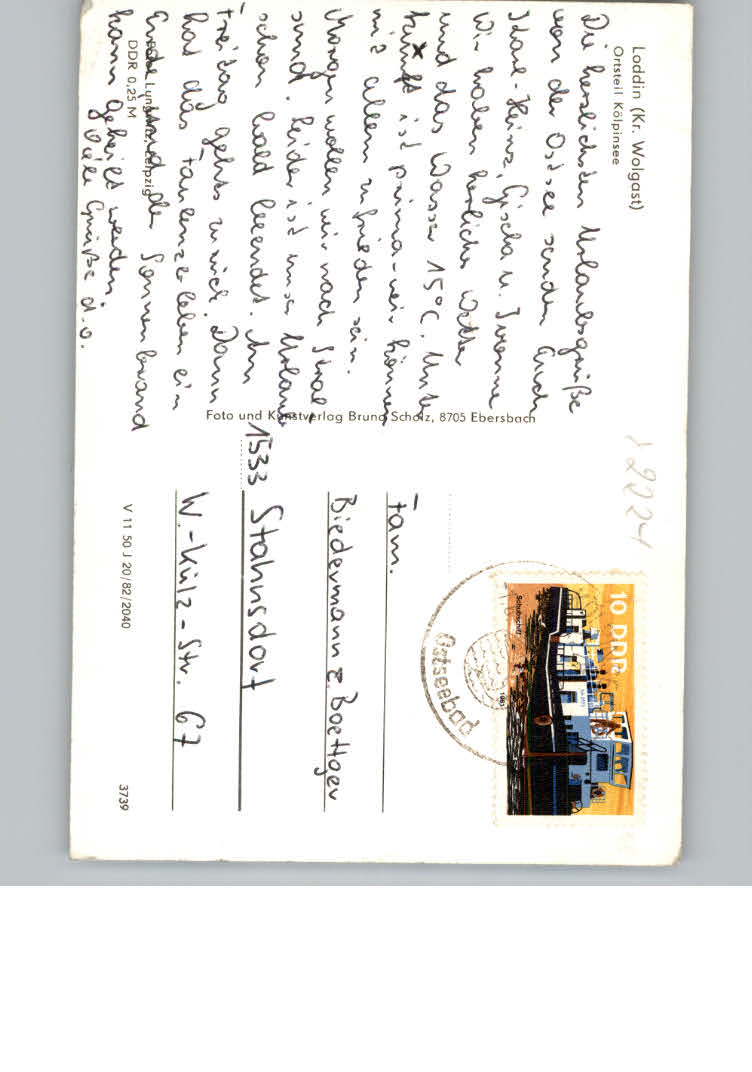 Loddin (Kr. Wolgast)
Ortsteil Kölpinsee
Die herzlichsten Urlaubsgrüße
von der Ostsee senden Euch
Karl-Heinz, Gisela u. Ivonne
Wir haben herrliches Wetter
und das Wasser 15°C. Unter
kunft ist prima - wir können
mit allem zufrieden sein.
Morgen wollen wir nach Stral
sund. Leider ist unser Urlaub
schon bald beendet. Am
Freitag gehts zurück. Dann
hat das Faulenzerleben ein
Ende und der Sonnenbrand
kann geheilt werden.
Viele Grüße d. o.
Lungwitz, Leipzig
DDR 0,25 M
Foto und Kunstverlag Bruno Scholz, 8705 Ebersbach
V 11 50 J 20/82/2040
3739
10 DDR
Ostseebad
Fam.
Biedermann z. Boettger
1533 Stahnsdorf
W.-Külz-Str. 67